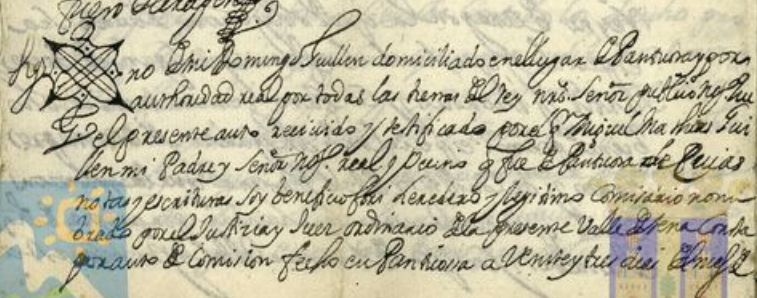 fuero Aragon
no de mi Domingo Guillen domiciliado en el lugar de Panticosa y por
authoridad real por todas las tierras del Rey nro. Señor publico not. que
el presente auto recivido y testificado por el q. Miguel Mathias Gui
llen mi Padre y Señor not. real y vecino q. fue de Panticosa de cuias
notas y escrituras soy beneficio fori heredero y legitimo Comisario nom
brado por el Justicia y Juez ordinario de la presente Valle de Tena Consta
por auto de Comision fecho en Panticosa a veinte y tres dias del mes de